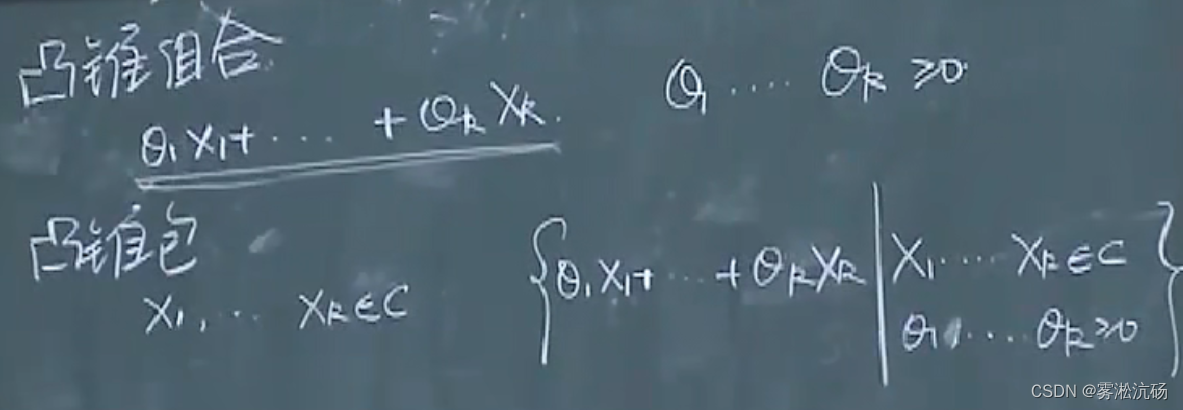 凸锥组合
θ₁x₁+ ···· + θₖxₖ. θ₁ ···· θₖ ≥0
凸锥包
x₁, ··· xₖ∈C
{θ₁x₁+ ··· + θₖxₖ | x₁···· xₖ∈C
θ₁ ···· θₖ≥0}
CSDN @雾淞沆砀